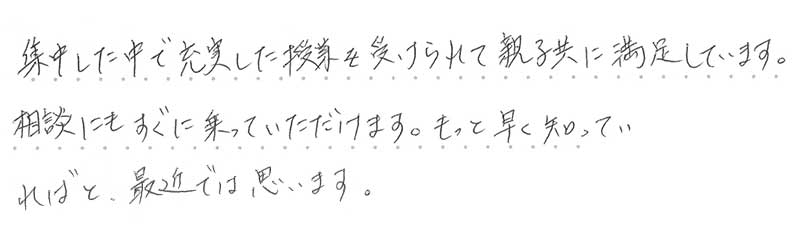 集中した中で充実した授業を受けられて親子共に満足しています。
相談にもすぐに乗っていただけます。もっと早く知ってい
ればと、最近では思います。